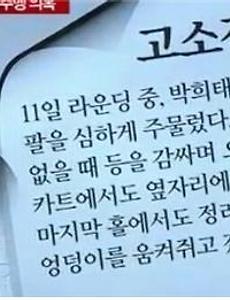 추행 의혹
고소
11일 라운딩 중, 박희태
팔을 심하게 주물렀다
없을 때 등을 감싸며
카트에서도 옆자리에
마지막 홀에서도
엉덩이를 움켜쥐고